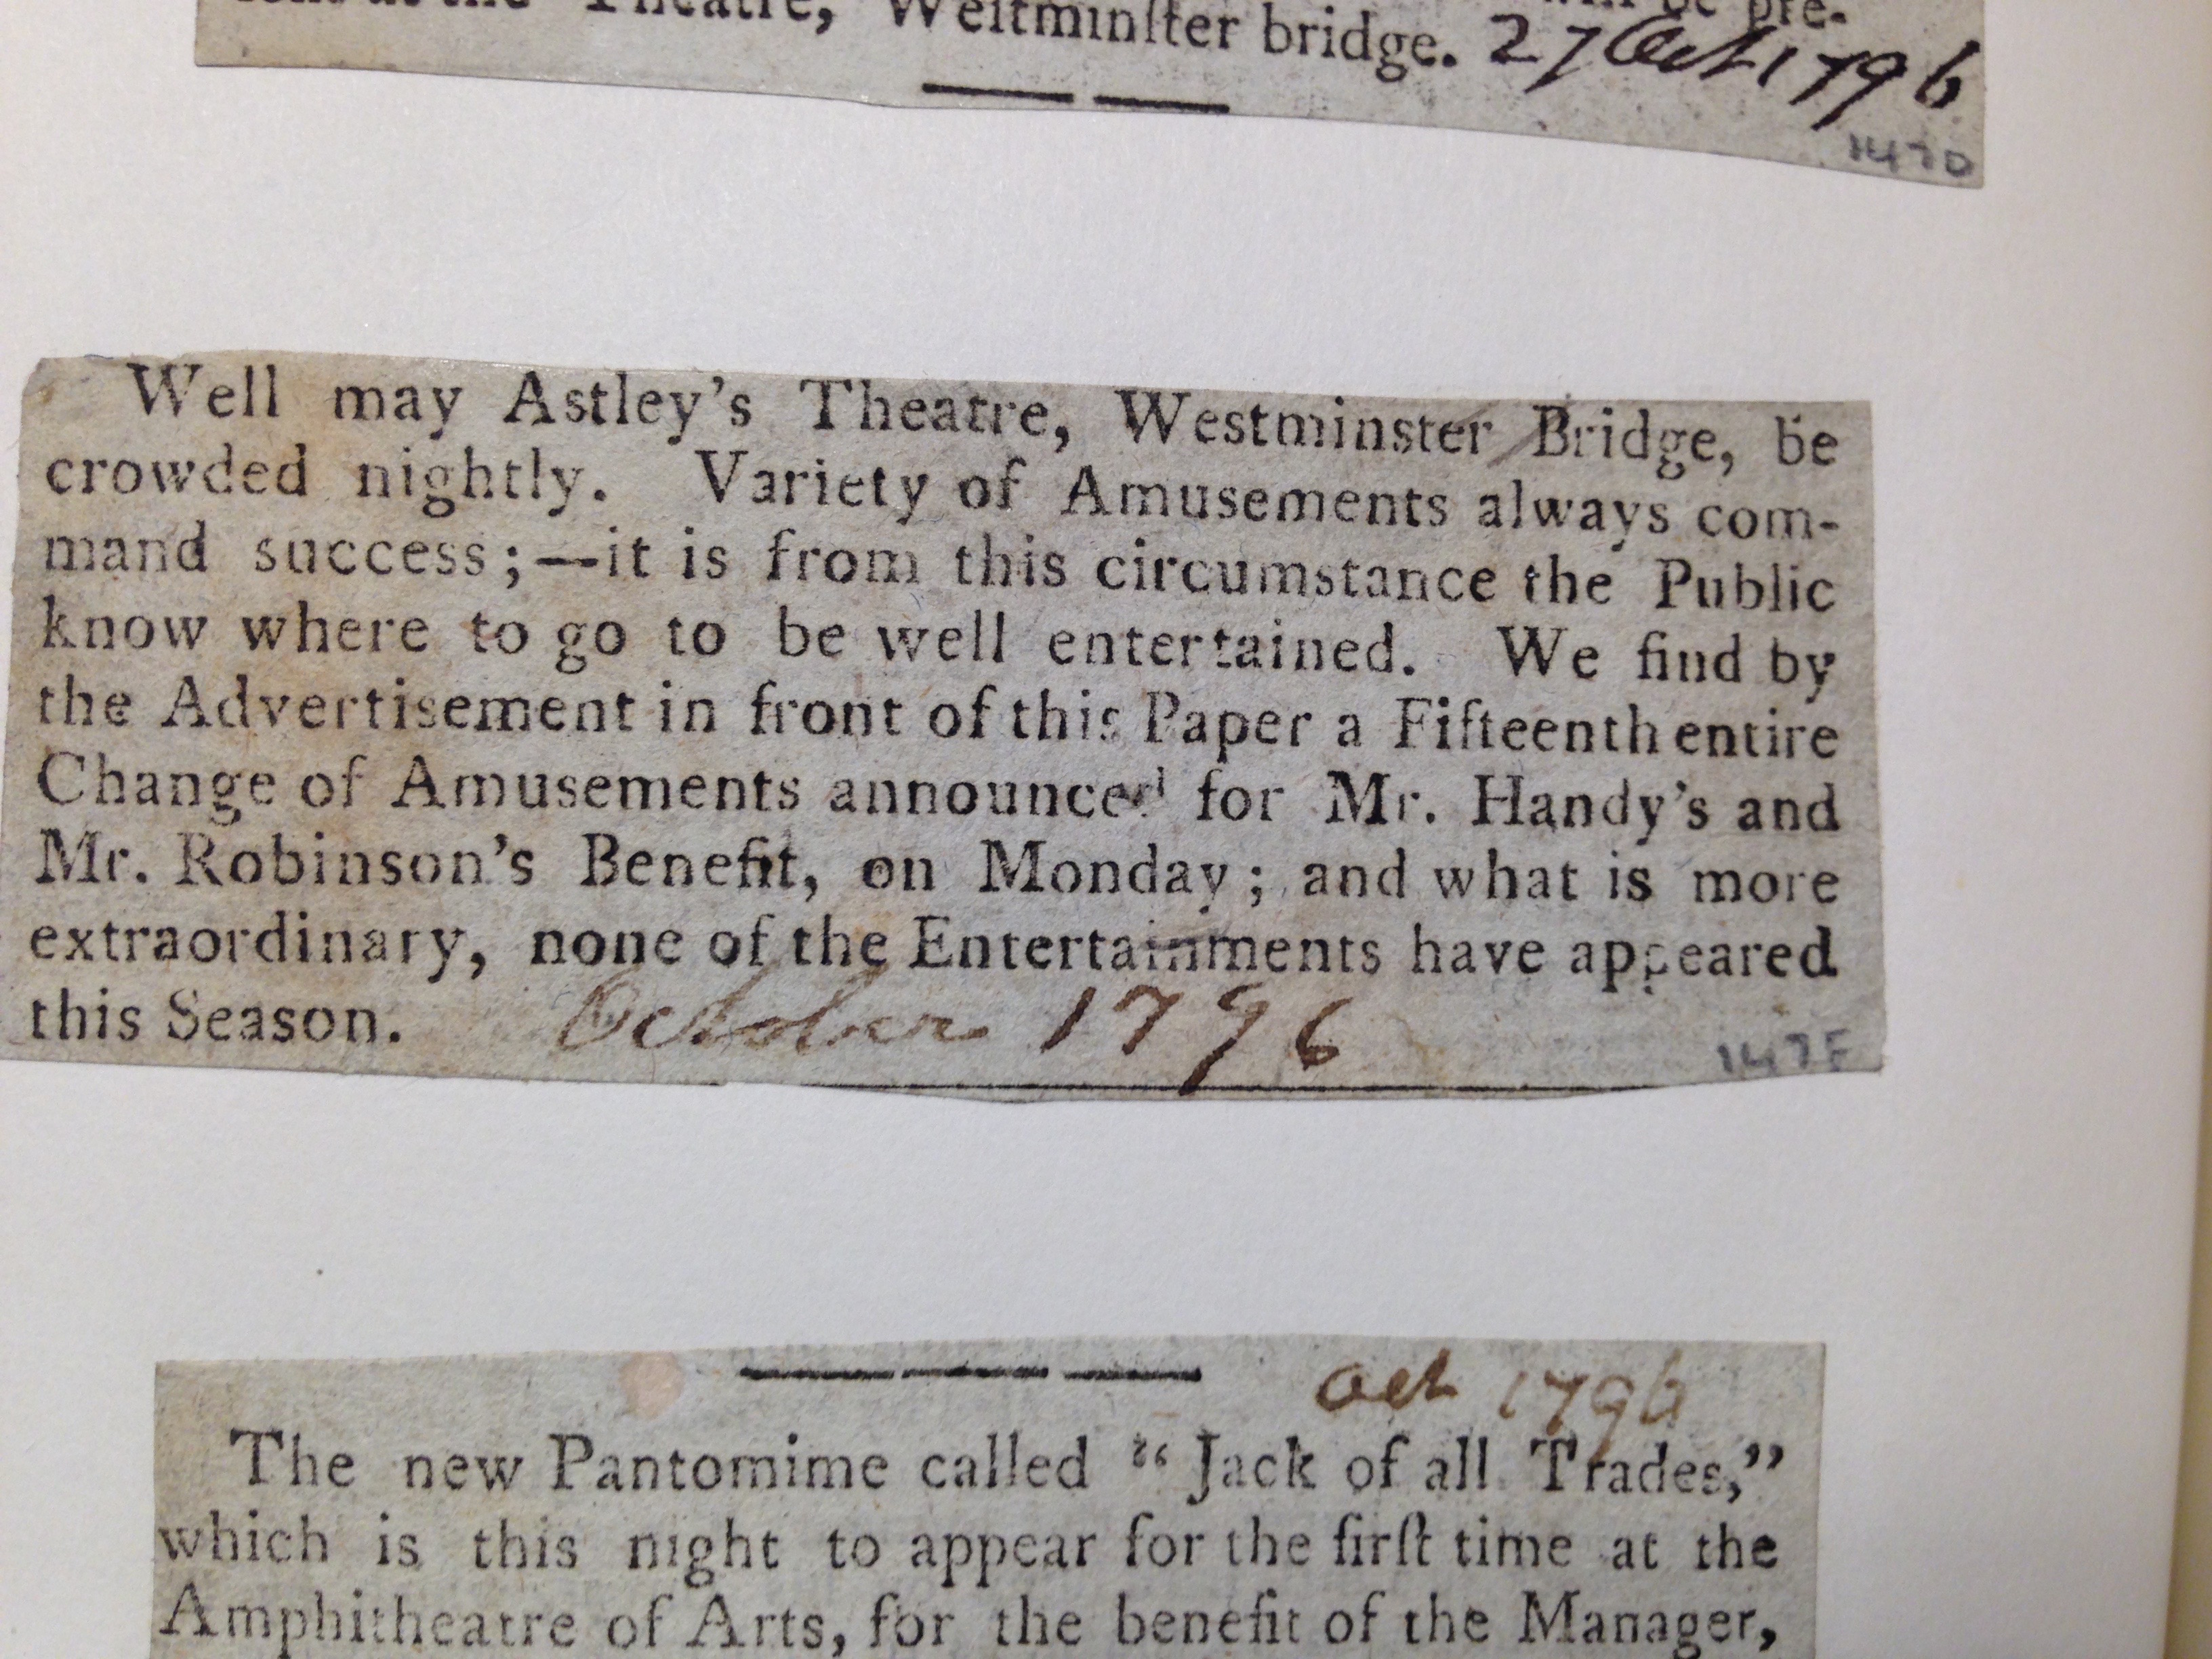 Theatre, Weſtminſter bridge. 27 Oct 1796
147D
Well may Astley's Theatre, Westminster Bridge, be
crowded nightly. Variety of Amusements always com-
mand success;—it is from this circumstance the Public
know where to go to be well entertained. We find by
the Advertisement in front of this Paper a Fifteenth entire
Change of Amusements announced for Mr. Handy's and
Mr. Robinson's Benefit, on Monday; and what is more
extraordinary, none of the Entertainments have appeared
this Season. October 1796
147E
Oct 1796
The new Pantomime called "Jack of all Trades,"
which is this night to appear for the firſt time at the
Amphitheatre of Arts, for the benefit of the Manager,